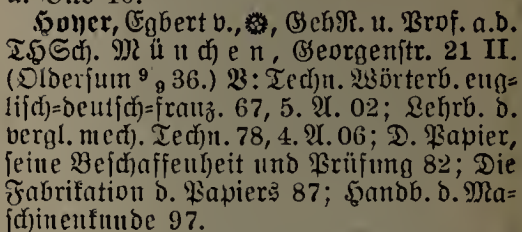 Hoyer, Egbert v., GehR. u. Prof. a. d.
THSch. München, Georgenstr. 21 II.
(Oldersum 9 9 36.) V: Techn. Wörterb. eng=
lisch=deutsch=franz. 67, 5. A. 02; Lehrb. d.
vergl. mech. Techn. 78, 4. A. 06; D. Papier,
seine Beschaffenheit und Prüfung 82; Die
Fabrikation d. Papiers 87; Handb. d. Ma=
schinenkunde 97.